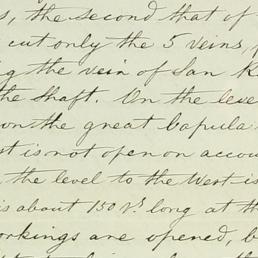 s, the second that of
cut only the 5 veins,
the vein of San
the shaft. On the leve
on the great Capula
st is not open on accou
the level to the West is
is about 150 Vs long at th
orkings are opened, b